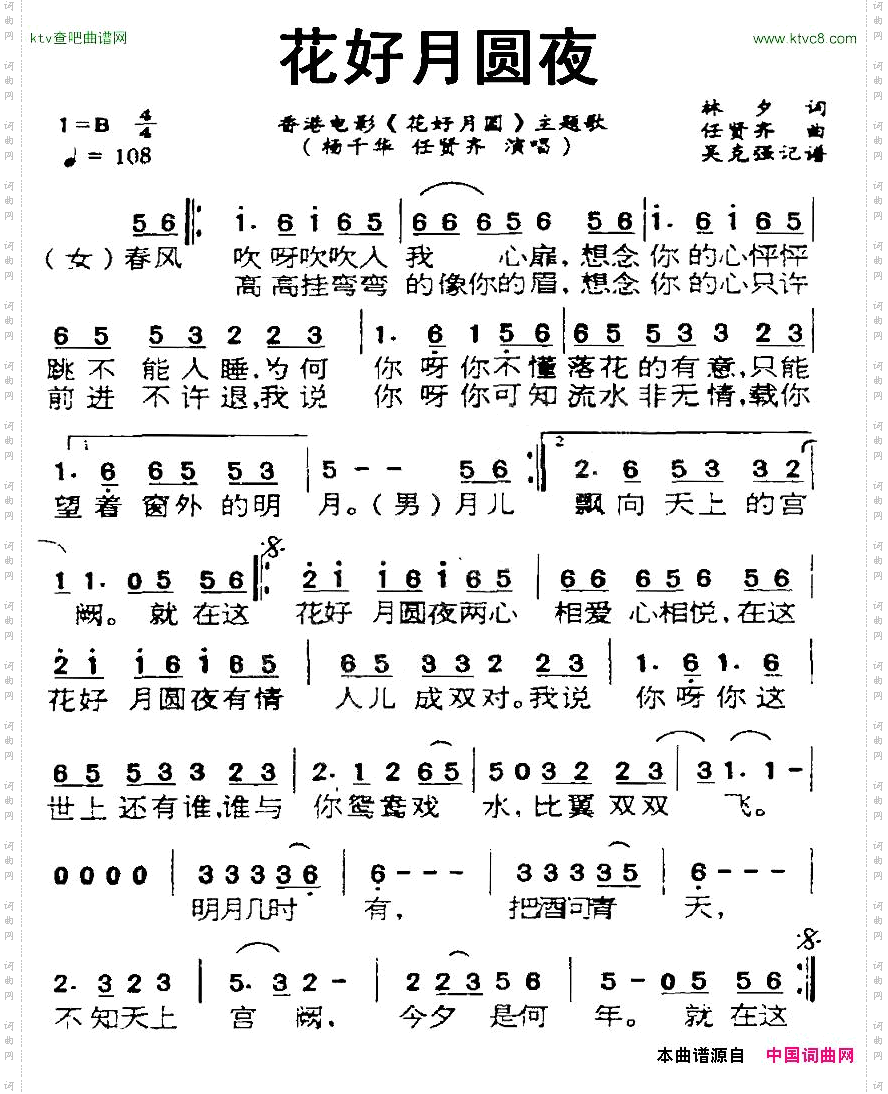 ktv查吧曲谱网
www.ktvc8.com
花好月圆夜
1=B 4/4
♩= 108
香港电影《花好月圆》主题歌
(杨千华 任贤齐 演唱)
林夕 词
任贤齐 曲
吴克强记谱
5 6 1· 6 1 6 5 6 6 6 5 6 5 6 1· 6 1 6 5
(女)春风 吹呀吹吹入我 心扉,想念你的心怦怦
高高挂弯弯的像你的眉,想念你的心只许
6 5 5 3 2 2 3 1· 6 1 5 6 6 5 5 3 3 2 3
跳不能入睡,为何 你呀你不懂落花的有意,只能
前进不许退,我说 你呀你可知流水非无情,载你
1· 6 6 5 5 3 5 - - 5 6 2· 6 5 3 3 2
望着窗外的明 月。(男)月儿 飘向天上的宫
1 1· 0 5 5 6 2 1 1 6 1 6 5 6 6 6 5 6 5 6
阙。就在这 花好月圆夜两心 相爱心相悦,在这
2 1 1 6 1 6 5 6 5 3 3 2 2 3 1· 6 1· 6
花好月圆夜有情 人儿成双对。我说 你呀你这
6 5 5 3 3 2 3 2· 1 2 6 5 5 0 3 2 2 3 3 1· 1 -
世上还有谁,谁与 你鸳鸯戏 水,比翼双双 飞。
0 0 0 0 3 3 3 3 6 6 - - - 3 3 3 3 5 6 - - -
明月几时 有, 把酒问青 天,
2· 3 2 3 5· 3 2 - 2 2 3 5 6 5 - 0 5 5 6
不知天上 宫阙, 今夕是何 年。就在这
本曲谱源自 中国词曲网